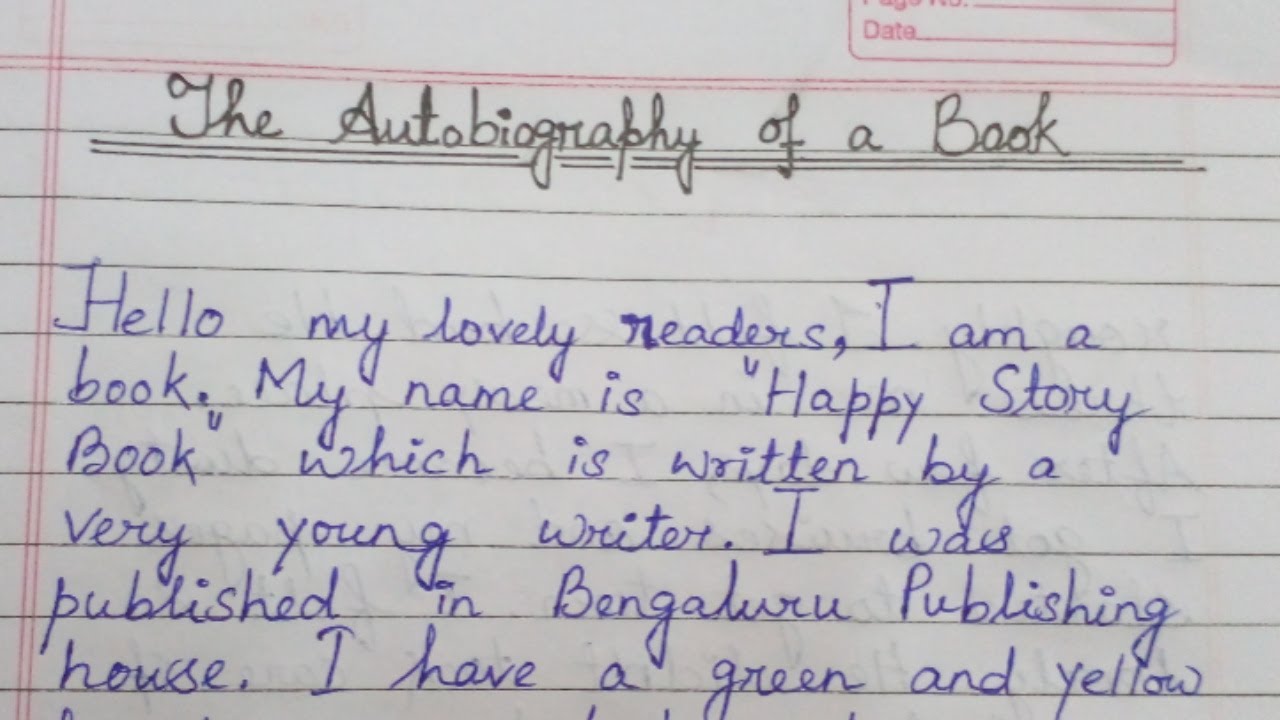 Page No.
Date
The Autobiography of a Book
Hello my lovely readers, I am a
book. My name is "Happy Story
Book" which is written by a
very young writer. I was
published in Bengaluru Publishing
house. I have a green and yellow